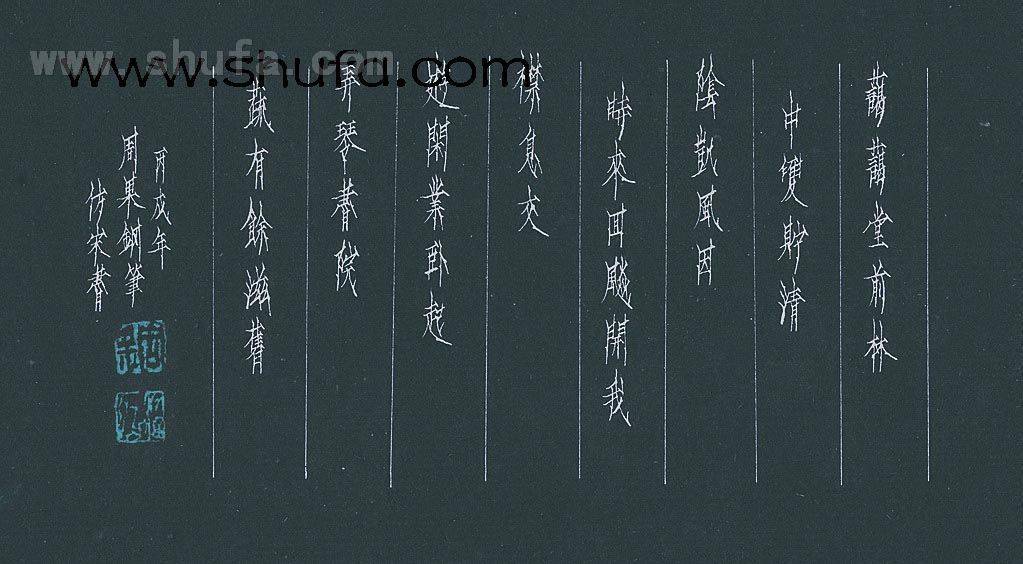 www.shufa.com
www.shufa.com
藹藹堂前林
中夏貯清
陰凱風因
時來回飈開我
襟息交
遊閑業臥起
弄琴書院
蔬有餘滋舊
丙戌年
周果鋼筆
仿宋書